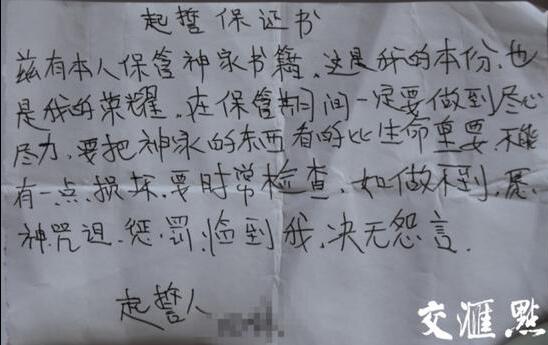 起誓保证书
兹有本人保管神家书籍,这是我的本份,也
是我的荣耀,在保管期间一定要做到尽心
尽力,要把神家的东西看的比生命重要,不能
有一点损坏,要时常检查,如做不到,愿
神咒诅、惩罚临到我,决无怨言.
起誓人
交汇點